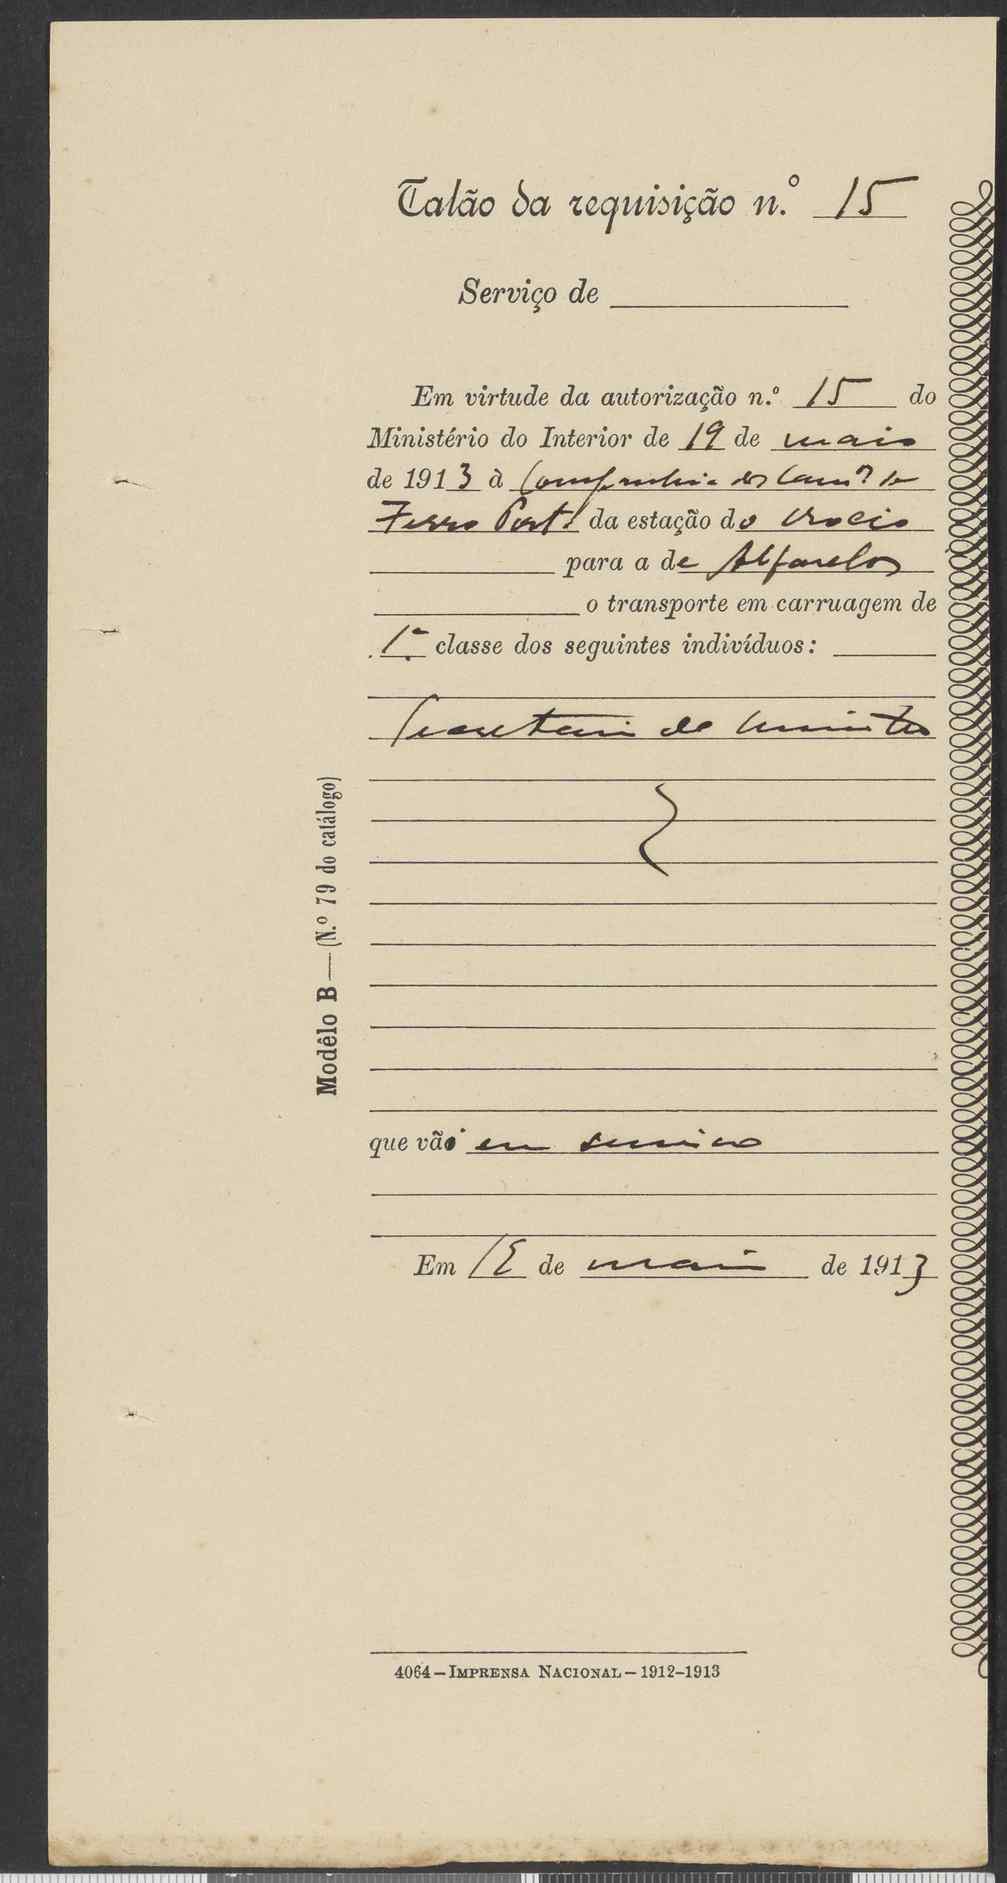 Talão da requisição n.º 15
Serviço de
Em virtude da autorização n.º 15 do
Ministério do Interior de 19 de maio
de 1913 à Companhia dos Camº de
Ferro Port. da estação do Rocio
para a de Alfarelos
o transporte em carruagem de
1.ª classe dos seguintes indivíduos:
Secretario do Ministro
que vão em serviço
Em de maio de 1913
Modêlo B — (N.º 79 do catálogo)
4064 – Imprensa Nacional – 1912-1913